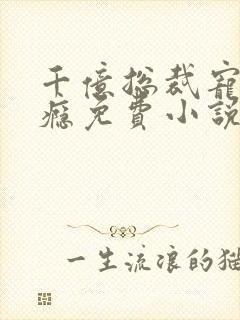 千億总裁寵
癮免費小說
一生流浪的猫